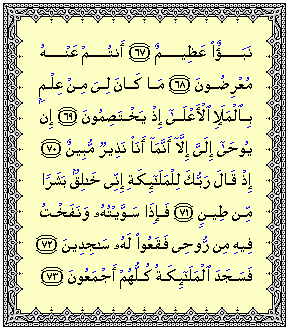 نَبَؤٌا۟ عَظِيمٌ ﴿٦٧﴾ أَنتُمْ عَنْهُ
مُعْرِضُونَ ﴿٦٨﴾ مَا كَانَ لِىَ مِنْ عِلْمٍۭ
بِٱلْمَلَإِ ٱلْأَعْلَىٰٓ إِذْ يَخْتَصِمُونَ ﴿٦٩﴾ إِن
يُوحَىٰٓ إِلَىَّ إِلَّآ أَنَّمَآ أَنَا۠ نَذِيرٌ مُّبِينٌ ﴿٧٠﴾
إِذْ قَالَ رَبُّكَ لِلْمَلَٰٓئِكَةِ إِنِّى خَٰلِقٌۢ بَشَرًا
مِّن طِينٍ ﴿٧١﴾ فَإِذَا سَوَّيْتُهُۥ وَنَفَخْتُ
فِيهِ مِن رُّوحِى فَقَعُوا۟ لَهُۥ سَٰجِدِينَ ﴿٧٢﴾
فَسَجَدَ ٱلْمَلَٰٓئِكَةُ كُلُّهُمْ أَجْمَعُونَ ﴿٧٣﴾